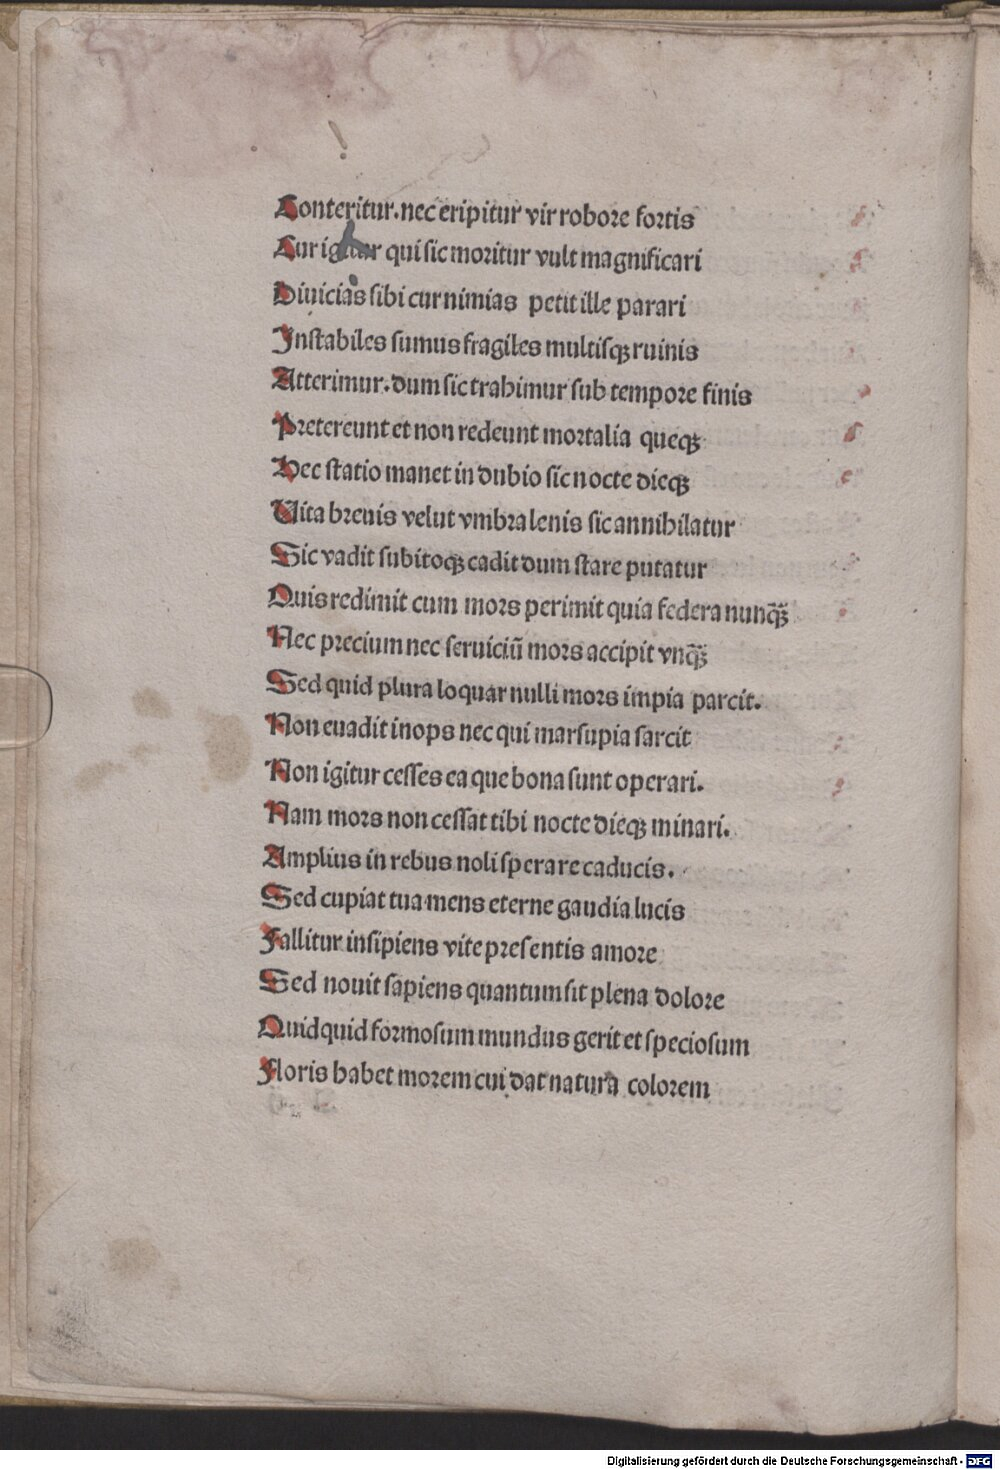 Conteritur. nec eripitur vir robore fortis
Cur igitur qui sic moritur vult magnificari
Diuicias sibi cur nimias petit ille parari
Instabiles sumus fragiles multisqꝫ ruinis
Atterimur. dum sic trahimur sub tempore finis
Pretereunt et non redeunt mortalia queqꝫ
Hec statio manet in dubio sic nocte dieqꝫ
Uita breuis velut vmbra lenis sic annihilatur
Sic vadit subitoqꝫ cadit dum stare putatur
Quis redimit cum mors perimit quia federa nunq̄ꝫ
Nec precium nec seruiciū mors accipit vnq̄ꝫ
Sed quid plura loquar nulli mors impia parcit.
Non euadit inops nec qui marsupia sarcit
Non igitur cesses ea que bona sunt operari.
Nam mors non cessat tibi nocte dieqꝫ minari.
Amplius in rebus noli sperare caducis.
Sed cupiat tua mens eterne gaudia lucis
Fallitur insipiens vite presentis amore
Sed nouit sapiens quantum sit plena dolore
Quidquid formosum mundus gerit et speciosum
Floris habet morem cui dat natura colorem
Digitalisierung gefördert durch die Deutsche Forschungsgemeinschaft - DFG